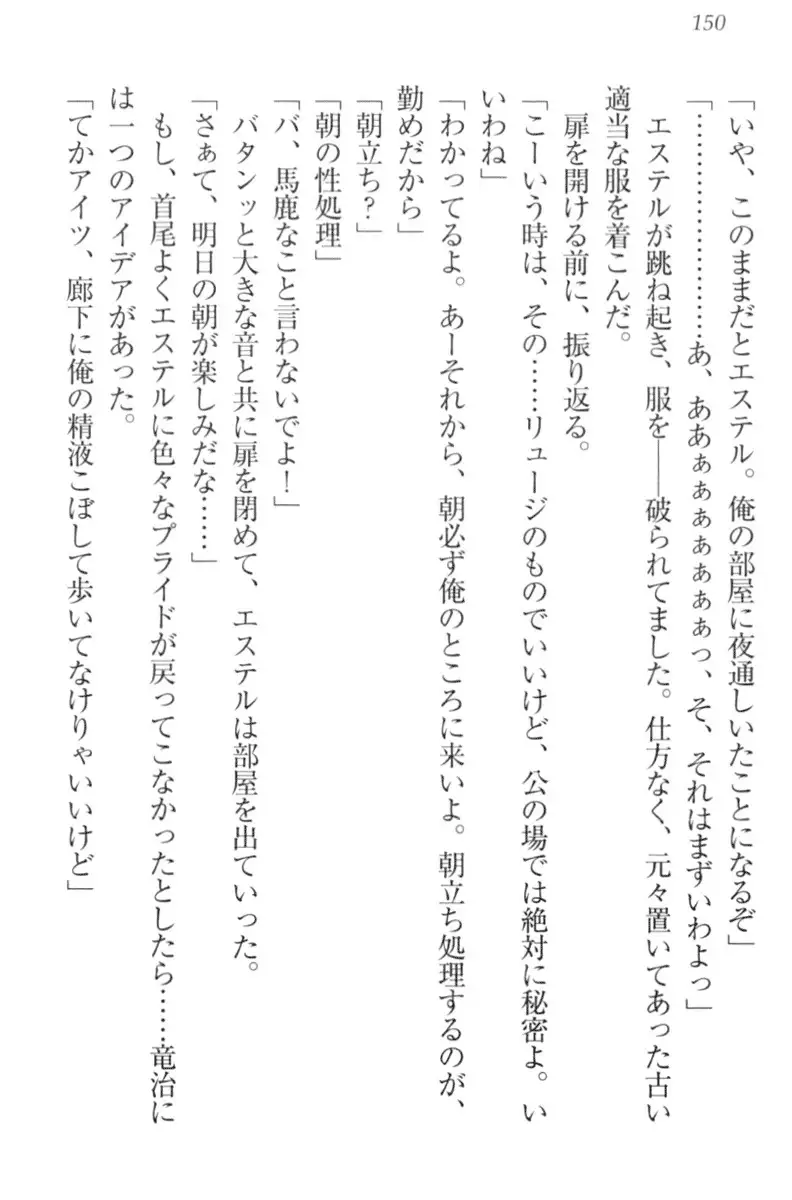 150
「いや、このままだとエステル。俺の部屋に夜通しいたことになるぞ」
「……………………あ、ああぁぁぁぁぁぁぁっ、そ、それはまずいわよっ」
　エステルが跳ね起き、服を――破られてました。仕方なく、元々置いてあった古い
適当な服を着こんだ。
　扉を開ける前に、振り返る。
「こーいう時は、その……リュージのものでいいけど、公の場では絶対に秘密よ。い
いわね」
「わかってるよ。あーそれから、朝必ず俺のところに来いよ。朝立ち処理するのが、
勤めだから」
「朝立ち?」
「朝の性処理」
「バ、馬鹿なこと言わないでよ!」
　バタンッと大きな音と共に扉を閉めて、エステルは部屋を出ていった。
「さぁて、明日の朝が楽しみだな……」
　もし、首尾よくエステルに色々なプライドが戻ってこなかったとしたら……竜治に
は一つのアイデアがあった。
「てかアイツ、廊下に俺の精液こぼして歩いてなけりゃいいけど」